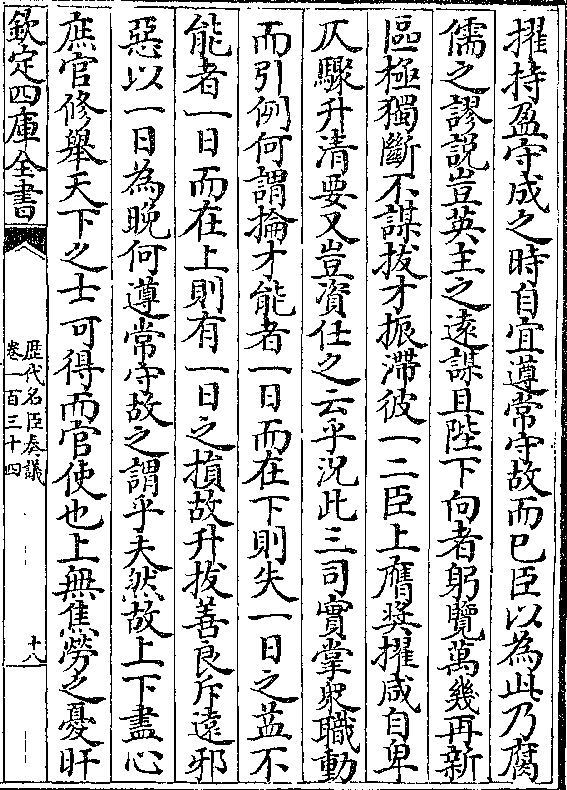 擢持盈守成之時自宜遵常守故而已臣以為此乃腐
儒之謬說豈英主之遠謀且陛下向者躬覽萬幾再新
區極獨斷不謀拔才振滯彼一二臣上膺奨擢咸自卑
仄驟升清要又豈資任之云乎況此三司實掌衆職動
而引例何謂掄才能者一日而在下則失一日之益不
能者一日而在上則有一日之損故升拔善良斥遠邪
惡以一日為晚何遵常守故之謂乎夫然故上下盡心
庶官修舉天下之士可得而官使也上無焦勞之憂旰
欽定四庫全書
歴代名臣奏議
卷一百三十四
十八